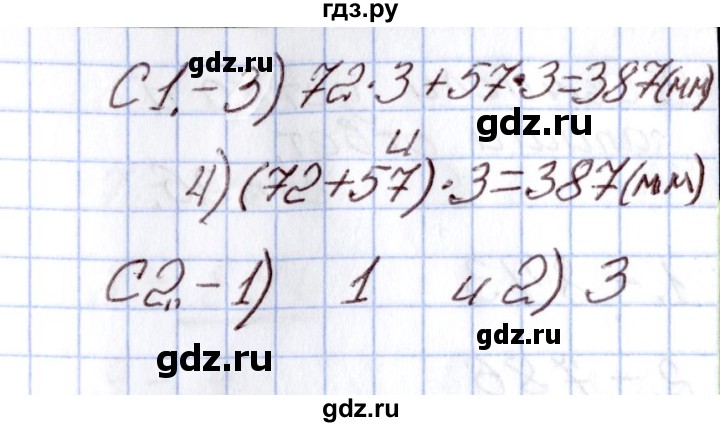 гдз.ру
С1.-3) 72·3+57·3=387(мм)
gdz.ru
gdz.ru
и
4) (72+57)·3=387(мм)
С2.-1) 1 и 2) 3
gdz.ru
gdz.ru
gdz.ru